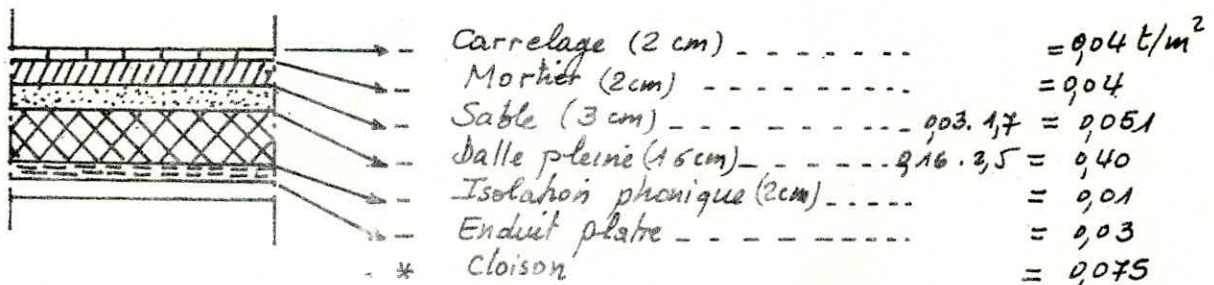 - Carrelage (2 cm) - - - - - - - = 0,04 t/m²
- Mortier (2cm) - - - - - - - = 0,04
- Sable (3 cm) - - - - - - - 0,03 . 1,7 = 0,051
- Dalle pleine (16cm) - - - - - - 0,16 . 2,5 = 0,40
- Isolation phonique (2cm) - - - - - = 0,01
- Enduit platre - - - - - - - - = 0,03
* Cloison = 0,075